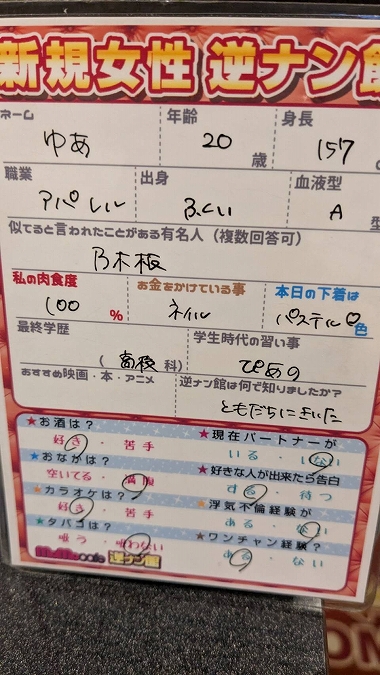 新規女性 逆ナン館
ネーム 年齢 身長
ゆあ 20 歳 157
職業 出身 血液型
アパレル ふくい A 型
似てると言われたことがある有名人（複数回答可）
乃木板
私の肉食度 お金をかけている事 本日の下着は
100 % ネイル パステル 色
最終学歴 学生時代の習い事
（ 高校 科） ぴあの
おすすめ映画・本・アニメ 逆ナン館は何で知りましたか？
ともだちにきいた
★お酒は？ ★現在パートナーが
好き・苦手 いる・いない
★おなかは？ ★好きな人が出来たら告白
空いてる・満腹 する・待つ
★カラオケは？ ★浮気不倫経験が
好き・苦手 ある・ない
★タバコは？ ★ワンチャン経験？
吸う・吸わない ある・ない
cafe 逆ナン館
OM